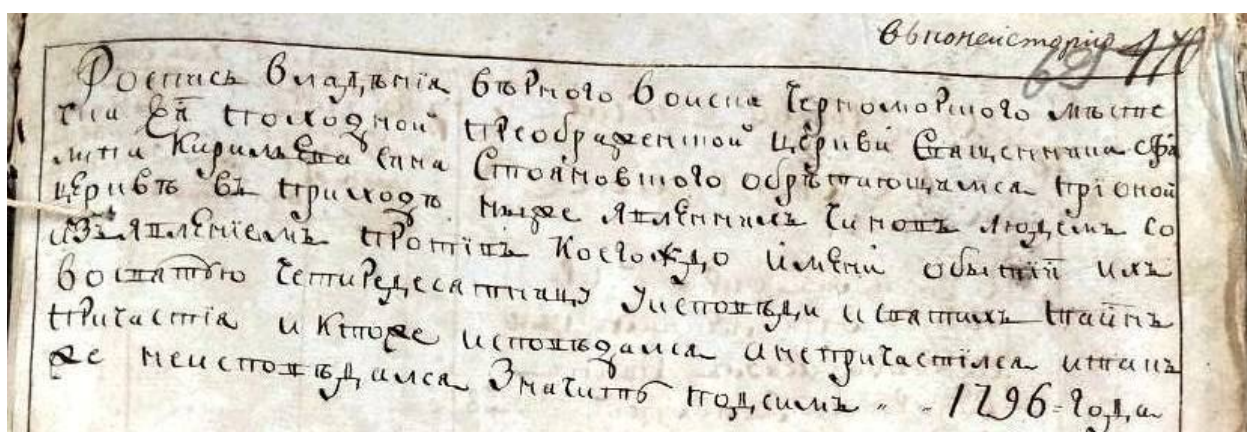 в консисторию
69 470
Роспись владѣнія вѣрного воиска черноморского мѣсте
чка Еи походной преображенской церкви Священника Фи
липа Кирилова сина Стояновского обрѣтающимся при оной
церквѣ въ приходѣ ныже явленнимъ чиновъ людемъ со
изъявлениемъ противъ коегождо имени обытіи ихъ
во святую четиредесятницу уисповѣди и святихъ таинъ
причастія и ктоже исповѣдался анепричастился итакъ
же неисповѣдался Значитъ подсимъ „ „ 1796=года